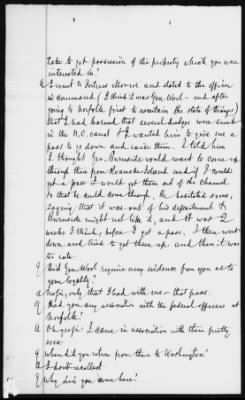 take to get possession of the property which you were
interested in?
A I went to Fortress Monroe and stated to the officer
in command (I think it was Gen Wool - and after
going to Norfolk first to ascertain the state of things)
that I had learned that several dredges were sunk
in the N.C. canal & I wanted him to give me a
pass to go down and raise them. I told him
I thought Gen Burnside would want to come up
through there from Roanoke Island and if I could
get a pass I would get them out of the channel
so that he could come through. He hesitated some,
saying that it was out of his department &
Burnside might not like it, and it was 2
weeks I think, before I got a pass. I then went
down and tried to get them up and then it was
too late.
Q Did Gen Wool require any evidence from you as to
your loyalty?
A No sir, only that I had with me - that pass.
Q Had you any association with the federal officers at
Norfolk?
A Oh yes sir: I came in association with them pretty
soon.
Q When did you return from there to Washington?
A I dont recollect
Q Why did you come here?